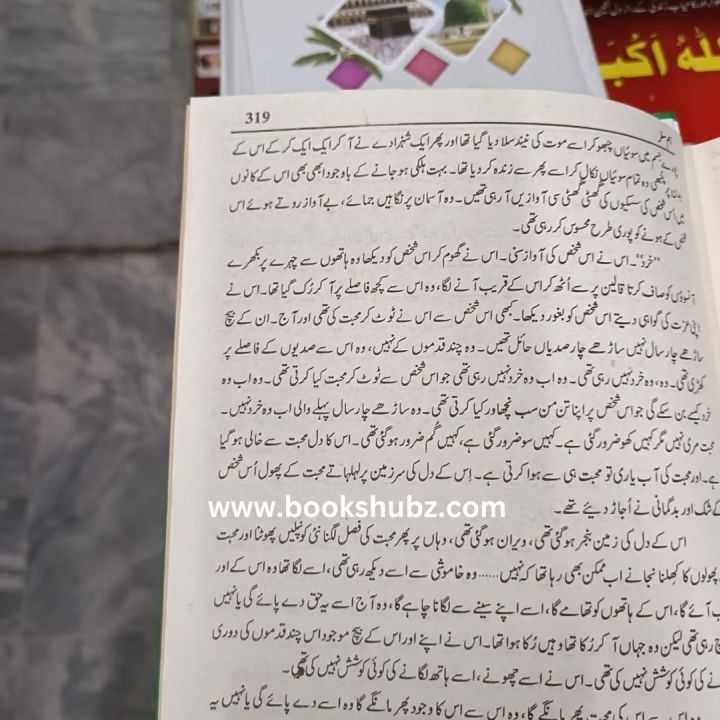 للہُ اَکبَر
319
ہم سفر
جسم میں سوئیاں چبھو کر اسے موت کی نیند سلا دیا گیا تھا اور پھر ایک شہزادے نے آ کر ایک ایک کر کے اس کے
چبھی وہ تمام سوئیاں نکال کر اسے پھر سے زندہ کر دیا تھا۔ بہت ہلکی ہو جانے کے باوجود ابھی بھی اس کے کانوں
میں اُس شخص کی سسکیوں کی گھٹی گھٹی سی آوازیں آ رہی تھیں۔ وہ آسمان پر نگاہیں جمائے، بے آواز روتے ہوئے اس
شخص کے ہونے کو پوری طرح محسوس کر رہی تھی۔
”خرد“۔ اس نے اس شخص کی آواز سنی۔ اس نے گھوم کر اس شخص کو دیکھا وہ ہاتھوں سے چہرے پر بکھرے
آنسوؤں کو صاف کرتا قالین پر سے اُٹھ کر اس کے قریب آنے لگا، وہ اس سے کچھ فاصلے پر آ کر رُک گیا تھا۔ اس نے
اپنی عزت کی گواہی دیتے اس شخص کو بغور دیکھا۔ کبھی اس شخص سے اس نے ٹوٹ کر محبت کی تھی اور آج۔ ان کے بیچ
ساڑھے چار سال نہیں ساڑھے چار صدیاں حائل تھیں۔ وہ چند قدموں کے نہیں، وہ اس سے صدیوں کے فاصلے پر
کھڑی تھی۔ وہ، وہ خرد نہیں رہی تھی۔ وہ اب وہ خرد نہیں رہی تھی جو اس شخص سے ٹوٹ کر محبت کیا کرتی تھی۔ وہ اب وہ
خرد کیسے بن سکے گی جو اس شخص پر اپنا تن من سب نچھاور کیا کرتی تھی۔ وہ ساڑھے چار سال پہلے والی اب وہ خرد نہیں۔
محبت مری نہیں مگر کہیں کھو ضرور گئی ہے۔ کہیں سو ضرور گئی ہے، کہیں گم ضرور ہو گئی تھی۔ اس کا دل محبت سے خالی ہو گیا
ہے۔ اور محبت کی آب یاری تو محبت ہی سے ہوا کرتی ہے۔ اِس کے دل کی سرزمین پر لہلہاتے محبت کے پھول اُس شخص
کے شک اور بدگمانی نے اُجاڑ دیئے تھے۔
www.bookshubz.com
اس کے دل کی زمین بنجر ہو گئی تھی، ویران ہو گئی تھی، وہاں پر پھر محبت کی فصل لگنا نئی کونپلیں پھوٹنا اور محبت
پھولوں کا کھلنا نجانے اب ممکن بھی رہا تھا کہ نہیں...... وہ خاموشی سے اسے دیکھ رہی تھی، اسے لگا تھا وہ اس کے اور
آئے گا، اس کے ہاتھوں کو تھامے گا، اسے اپنے سینے سے لگانا چاہے گا، وہ آج اسے یہ حق دے پائے گی یا نہیں
رہی تھی لیکن وہ جہاں آ کر رُکا تھا وہیں رُکا ہوا تھا۔ اس نے اپنے اور اس کے بیچ موجود اس چند قدموں کی دوری
نے کی کوئی کوشش نہیں کی تھی۔ اس نے اسے چھونے، اسے ہاتھ لگانے کی کوئی کوشش نہیں کی تھی۔
اس کی محبت پھر مانگے گا، وہ اس سے اس کا وجود پھر مانگے گا وہ اسے دے پائے گی یا نہیں یہ